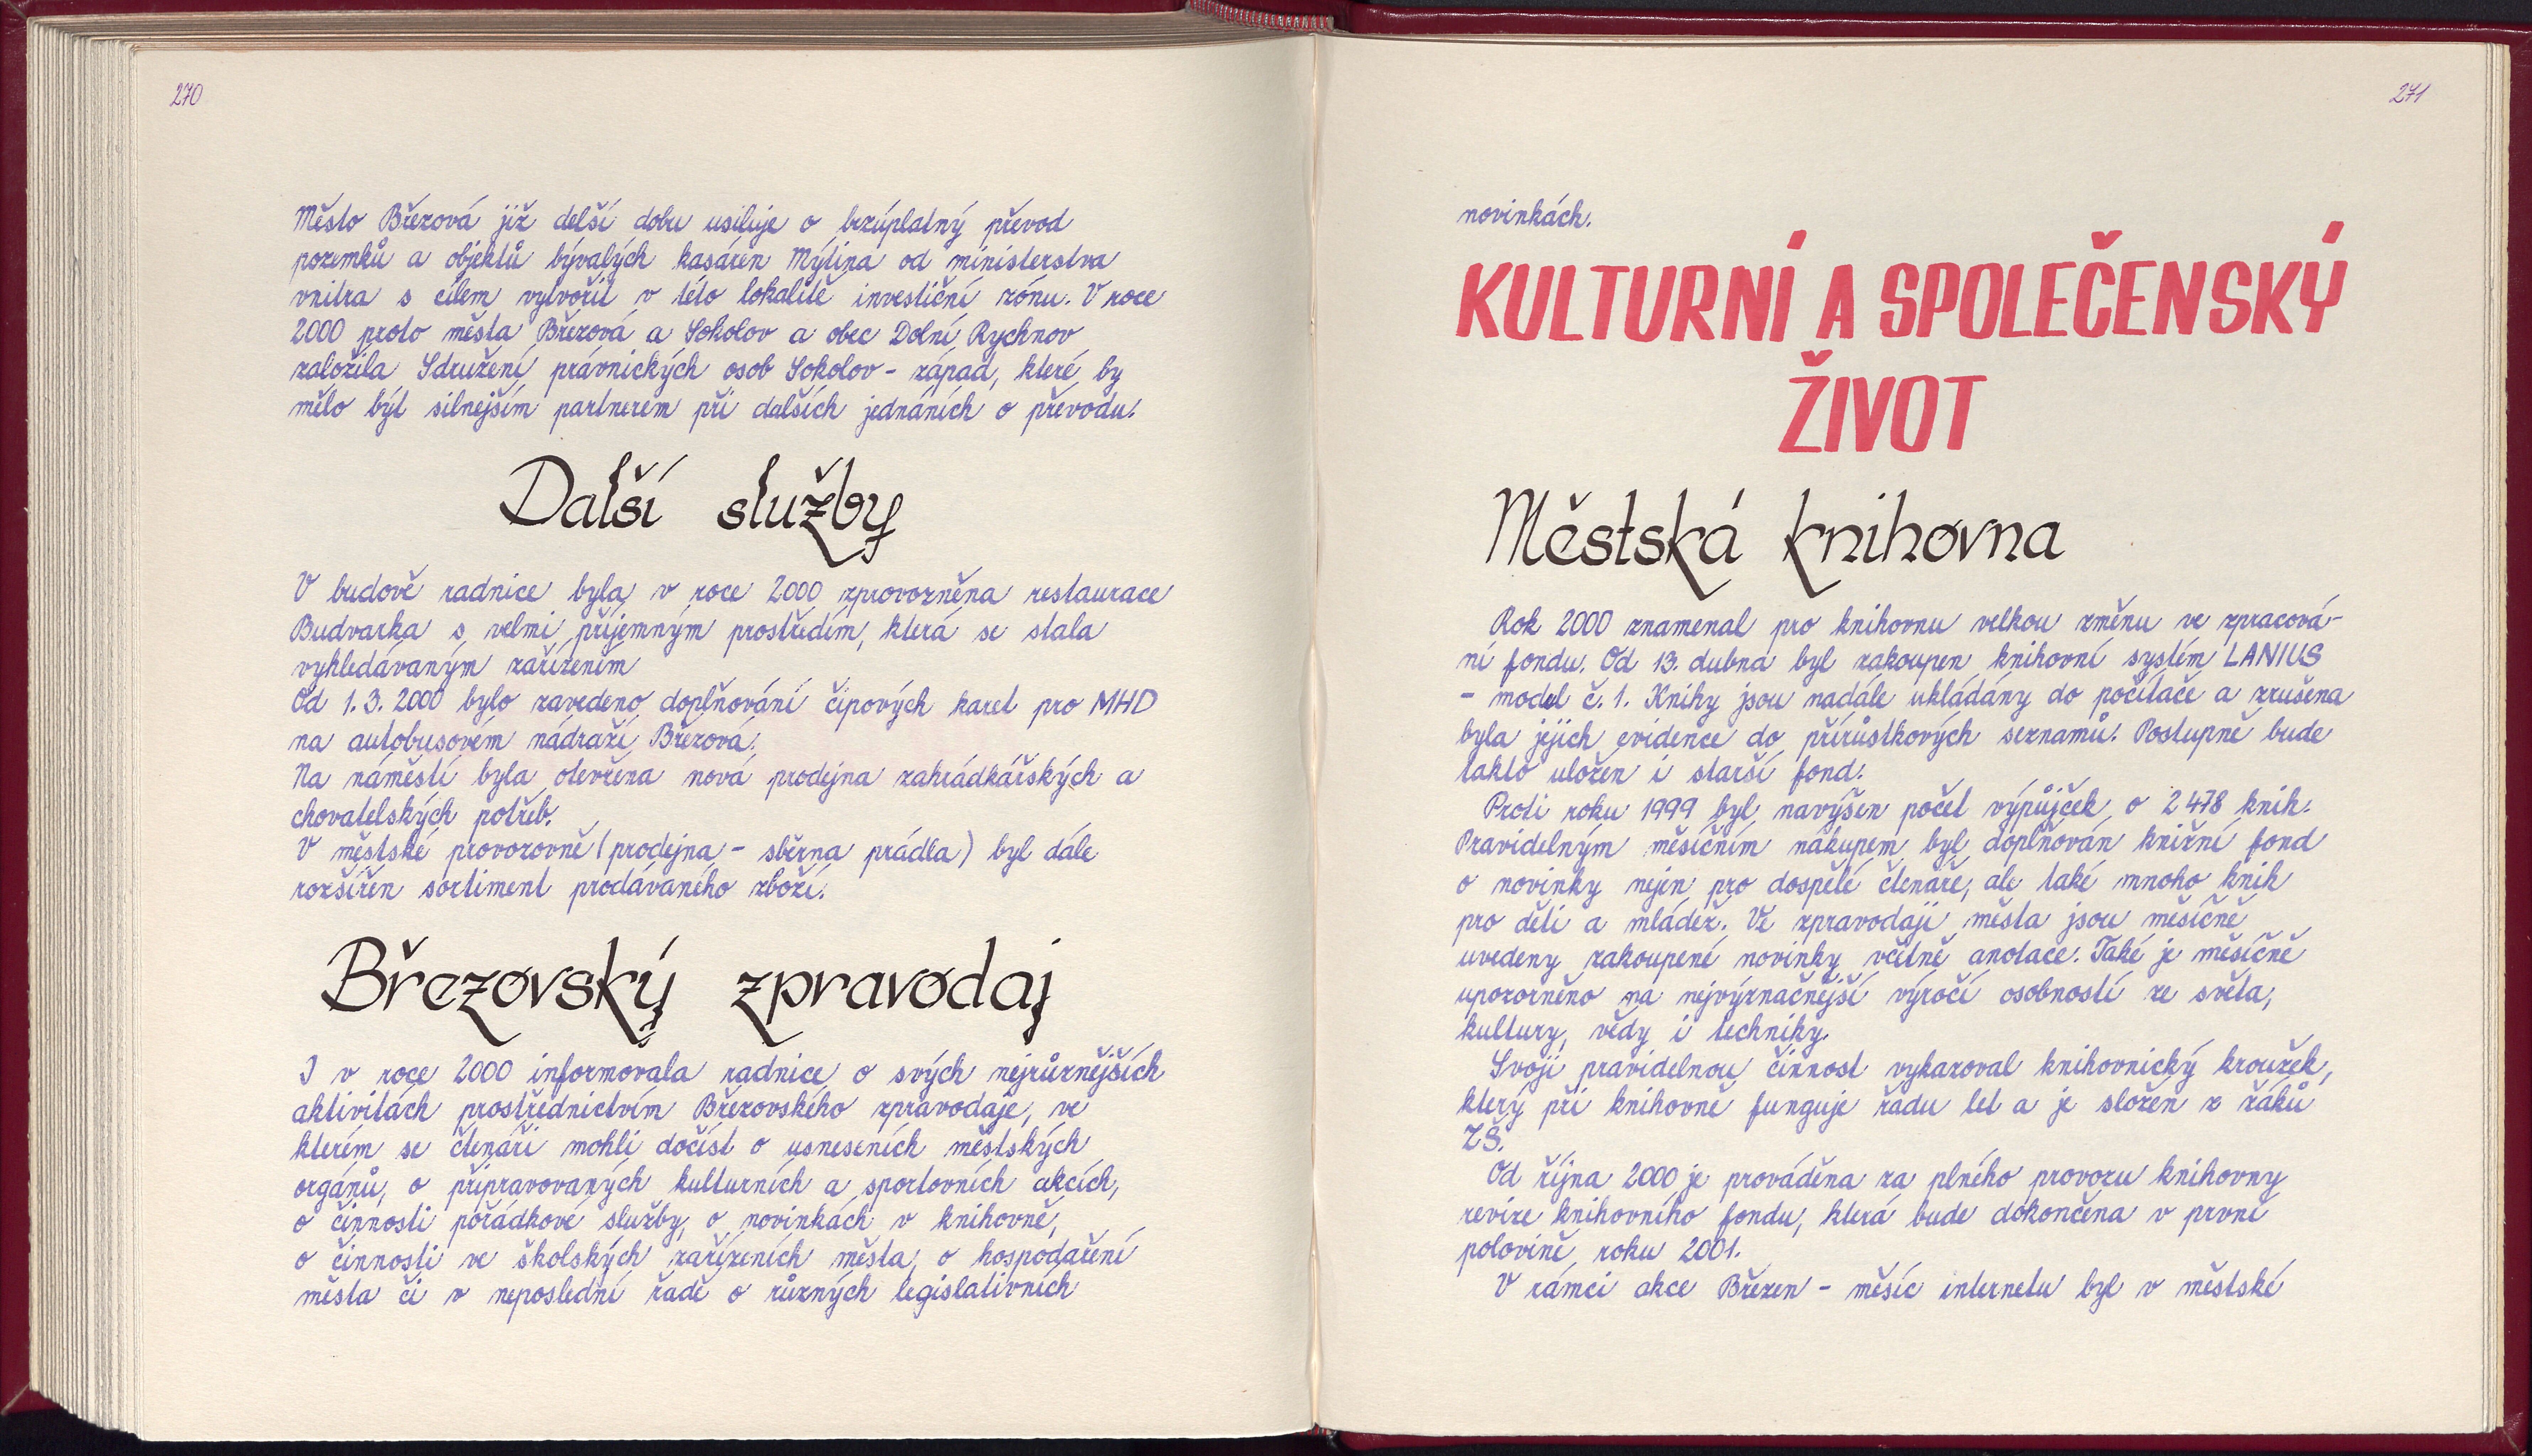 270
Město Březová již delší dobu usiluje o bezúplatný převod
pozemků a objektů bývalých kasáren Mýtina od ministerstva
vnitra s cílem vytvořit v této lokalitě investiční zónu. V roce
2000 proto města Březová a Sokolov a obec Dolní Rychnov
založila Sdružení právnických osob Sokolov - západ, které by
mělo být silnejším partnerem při dalších jednáních o převodu.
Další služby
V budově radnice byla v roce 2000 zprovozněna restaurace
Budvarka s velmi příjemným prostředím, která se stala
vyhledávaným zařízením
Od 1. 3. 2000 bylo zavedeno doplňování čipových karet pro MHD
na autobusovém nádraží Březová.
Na náměstí byla otevřena nová prodejna zahrádkářských a
chovatelských potřeb.
V městské provozovně (prodejna - sběrna prádla) byl dále
rozšířen sortiment prodávaného zboží.
Březovský zpravodaj
I v roce 2000 informovala radnice o svých nejrůznějších
aktivitách prostřednictvím Březovského zpravodaje, ve
kterém se čtenáři mohli dočíst o usneseních městských
orgánů, o připravovaných kulturních a sportovních akcích,
o činnosti pořádkové služby, o novinkách v knihovně,
o činnosti ve školských zařízeních města, o hospodaření
města či v neposlední řadě o různých legislativních
271
novinkách.
KULTURNÍ A SPOLEČENSKÝ
ŽIVOT
Městská knihovna
Rok 2000 znamenal pro knihovnu velkou změnu ve zpracová-
ní fondu. Od 13. dubna byl zakoupen knihovní systém LANIUS
- model č. 1. Knihy jsou nadále ukládány do počítače a zrušena
byla jejich evidence do přírůstkových seznamů. Postupně bude
takto uložen i starší fond.
Proti roku 1999 byl navýšen počet výpůjček o 2 478 knih.
Pravidelným měsíčním nákupem byl doplňován knižní fond
o novinky nejen pro dospělé čtenáře, ale také mnoho knih
pro děti a mládež. Ve zpravodaji města jsou měsíčně
uvedeny zakoupené novinky včetně anotace. Také je měsíčně
upozorněno na nejvýznačnější výročí osobností ze světa,
kultury, vědy i techniky.
Svoji pravidelnou činnost vykazoval knihovnický kroužek,
který při knihovně funguje řadu let a je složen z žáků
ZŠ.
Od října 2000 je prováděna za plného provozu knihovny
revize knihovního fondu, která bude dokončena v první
polovině roku 2001.
V rámci akce Březen - měsíc internetu byl v městské